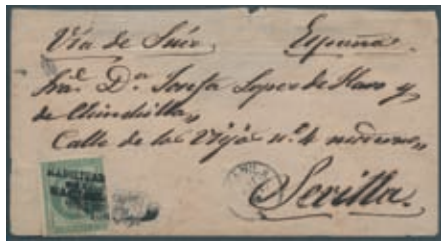 Via de Suez, España
Sra. Dª Josefa Lopez de Haro y
de Chinchilla,
Calle de la Vieja nº 4
Sevilla.
HABILITADO